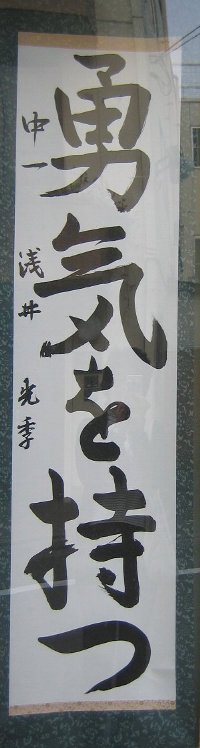 勇気を持つ
中一 浅井 光季